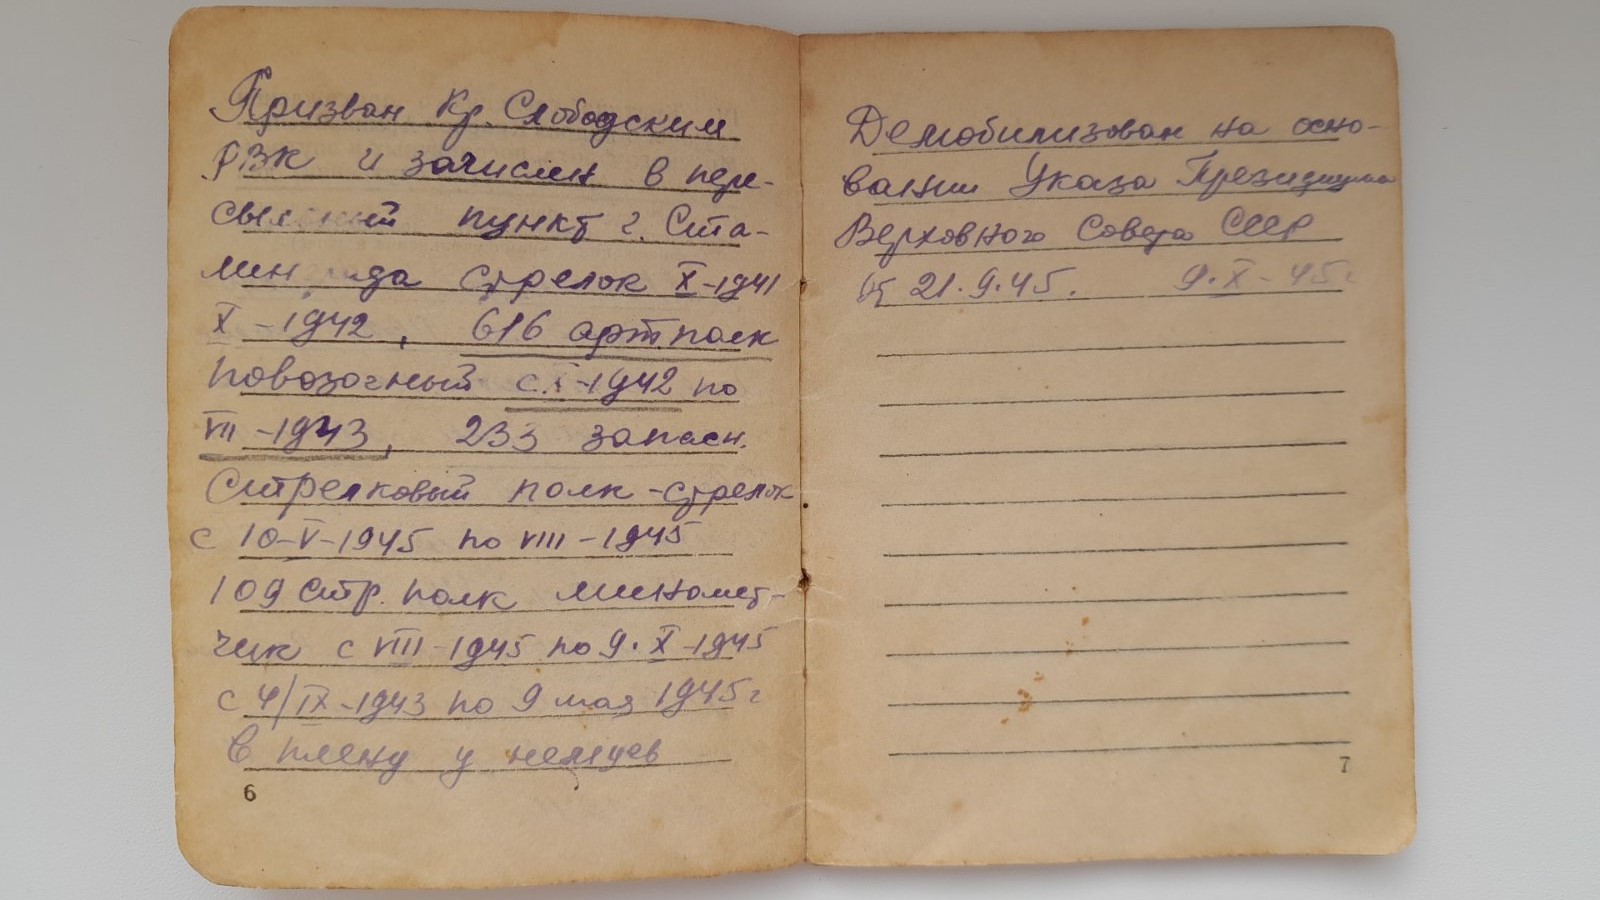 Призван Кр. Слободским
РВК и зачислен в пере-
сыльный пункт г. Ста-
линграда стрелок X-1941
X-1942, 616 артполк
повозочный с X-1942 по
VII-1943, 233 запасн.
Стрелковый полк-стрелок
с 10-V-1945 по VIII-1945
109 стр. полк миномет-
чик с VIII-1945 по 9.X-1945
с 4/IX-1943 по 9 мая 1945г
в плену у немцев
6
Демобилизован на осно-
вании Указа Президиума
Верховного Совета СССР
от 21.9.45. 9.X-45г
7